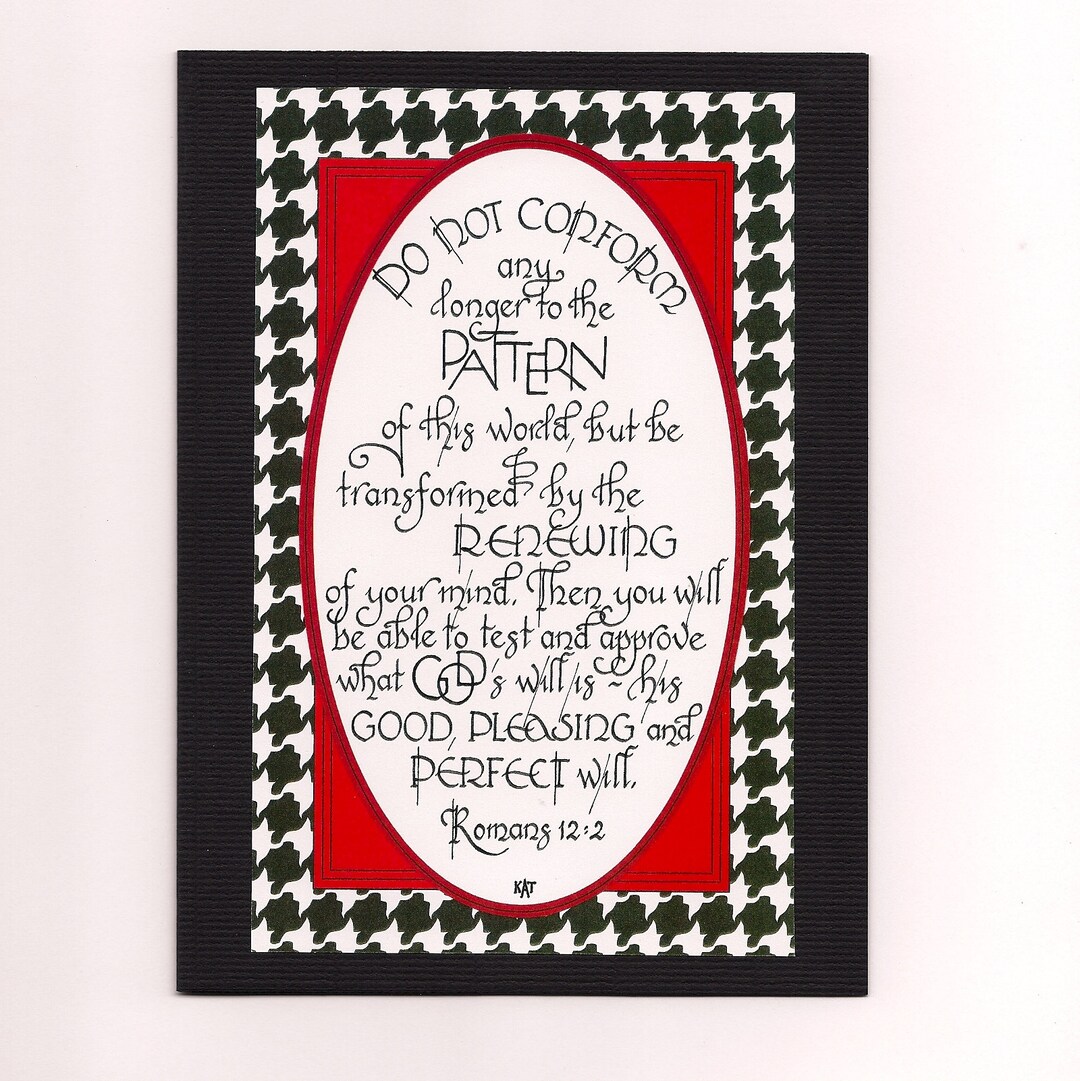 DO NOT CONFORM
any
longer to the
PATTERN
of this world, but be
transformed by the
RENEWING
of your mind. Then you will
be able to test and approve
what GOD's will is ~ his
GOOD, PLEASING and
PERFECT will.
Romans 12:2
KAT